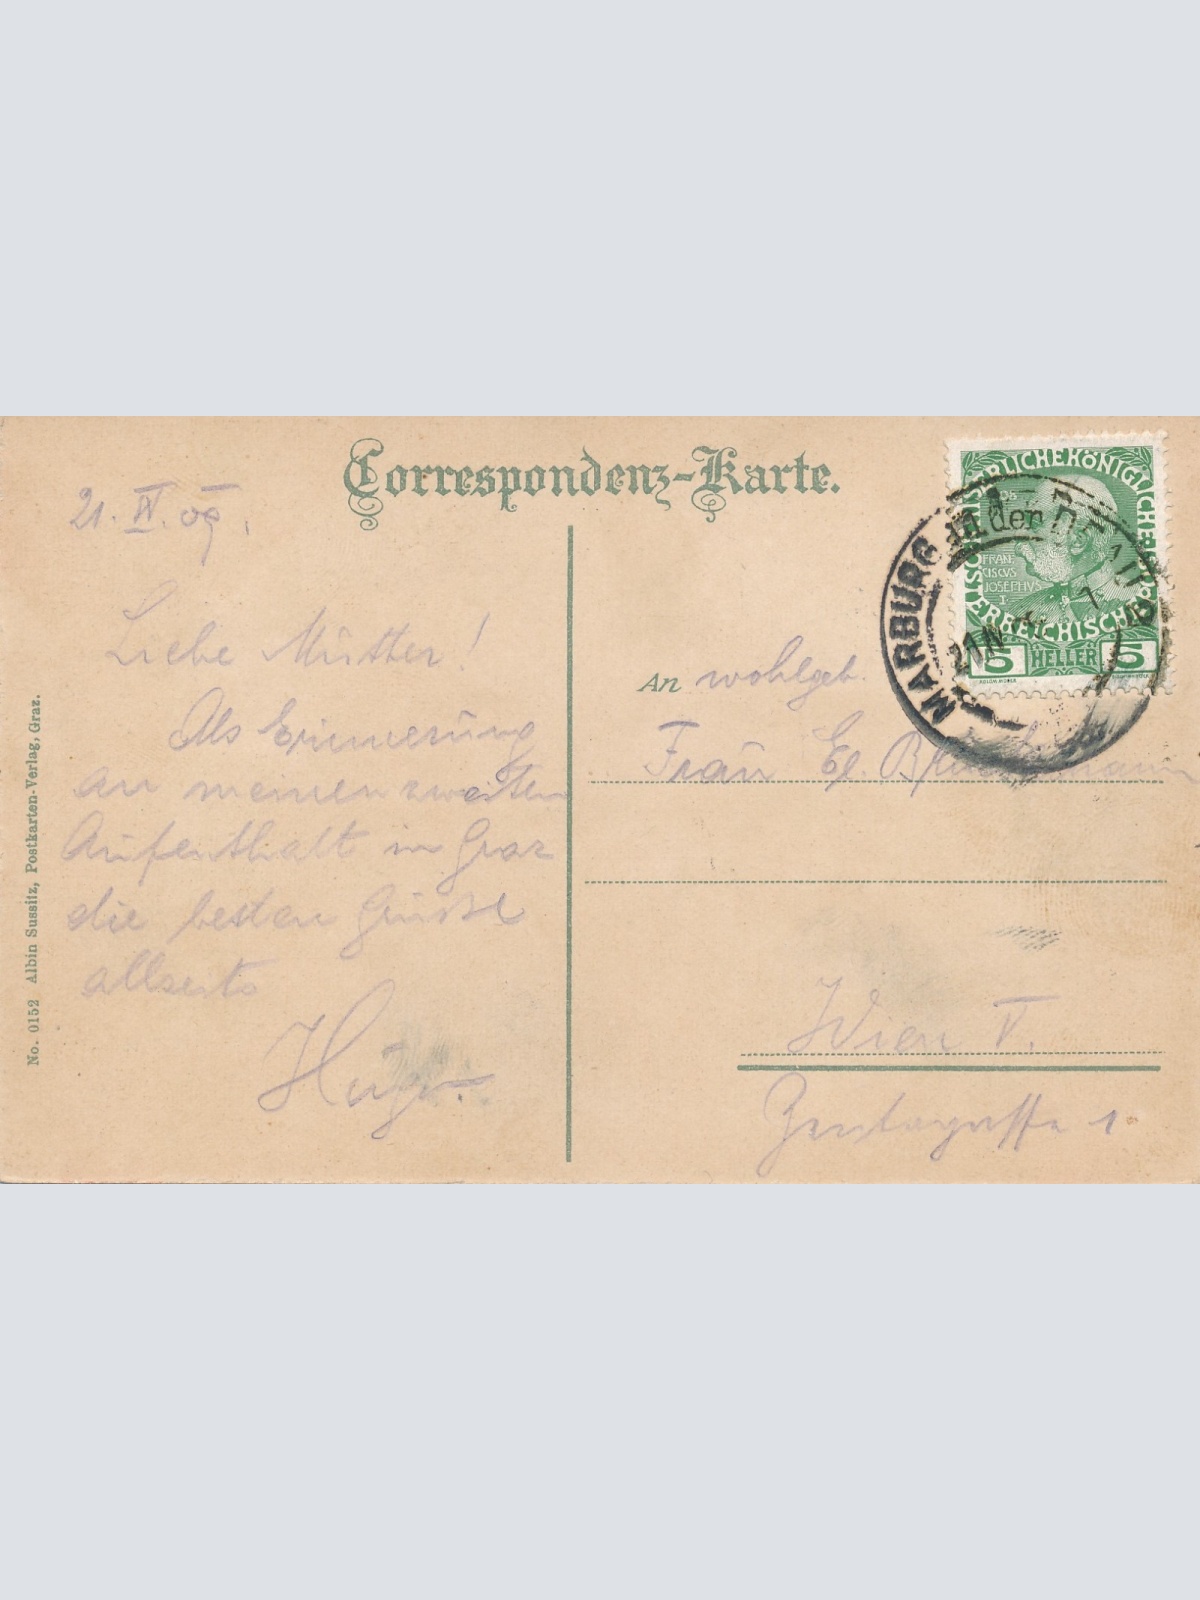 Correspondenz-Karte.
21. IV. 09.
Liebe Mutter!
Als Erinnerung
an meinen zweiten
Aufenthalt in Graz
die besten Grüße
allseits
Hugo.
No. 0152 Albin Sussitz, Postkarten-Verlag, Graz.
KAISERLICHE KÖNIGLICHE ÖSTERREICHISCHE POST
FRAN
CISCVS
JOSEPHVS
I.
5 HELLER 5
MARBURG an der DRAU
21 IV
An wohlgeb.
Frau El.
Wien V.
1.